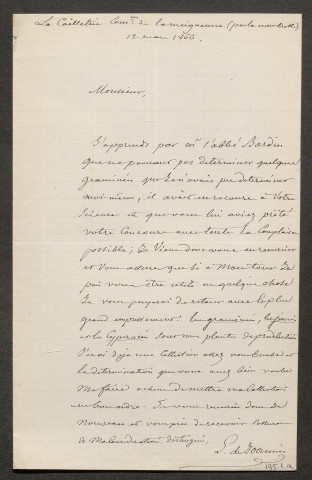 La Câtteline Com.ne de la meignanne (par la membrolle)
12 mars 1866.
Monsieur,
J'apprends par Mr l'abbé Bardin
que ne pouvant pas déterminer quelques
graminées que je n'avais pu déterminer
moi-même, il avait eu recours à votre
Science et que vous lui aviez prêté
votre Concours avec toute la Complaisance
possible; je viens donc vous en remercier
et vous assurer que si à mon tour je
puis vous être utile en quelque chose
Je vous payerai de retour avec le plus
grand empressement: les graminées, les
et les Cypéracées sont mes plantes de prédilection
J'en ai déjà une Collection assez nombreuse et
la détermination que vous avez bien voulu
me faire achève de mettre ma collection
en bon ordre. Je vous remercie donc de
nouveau et vous prie de recevoir l'assurance
de ma considération distinguée,
de Joannis
195.1.a